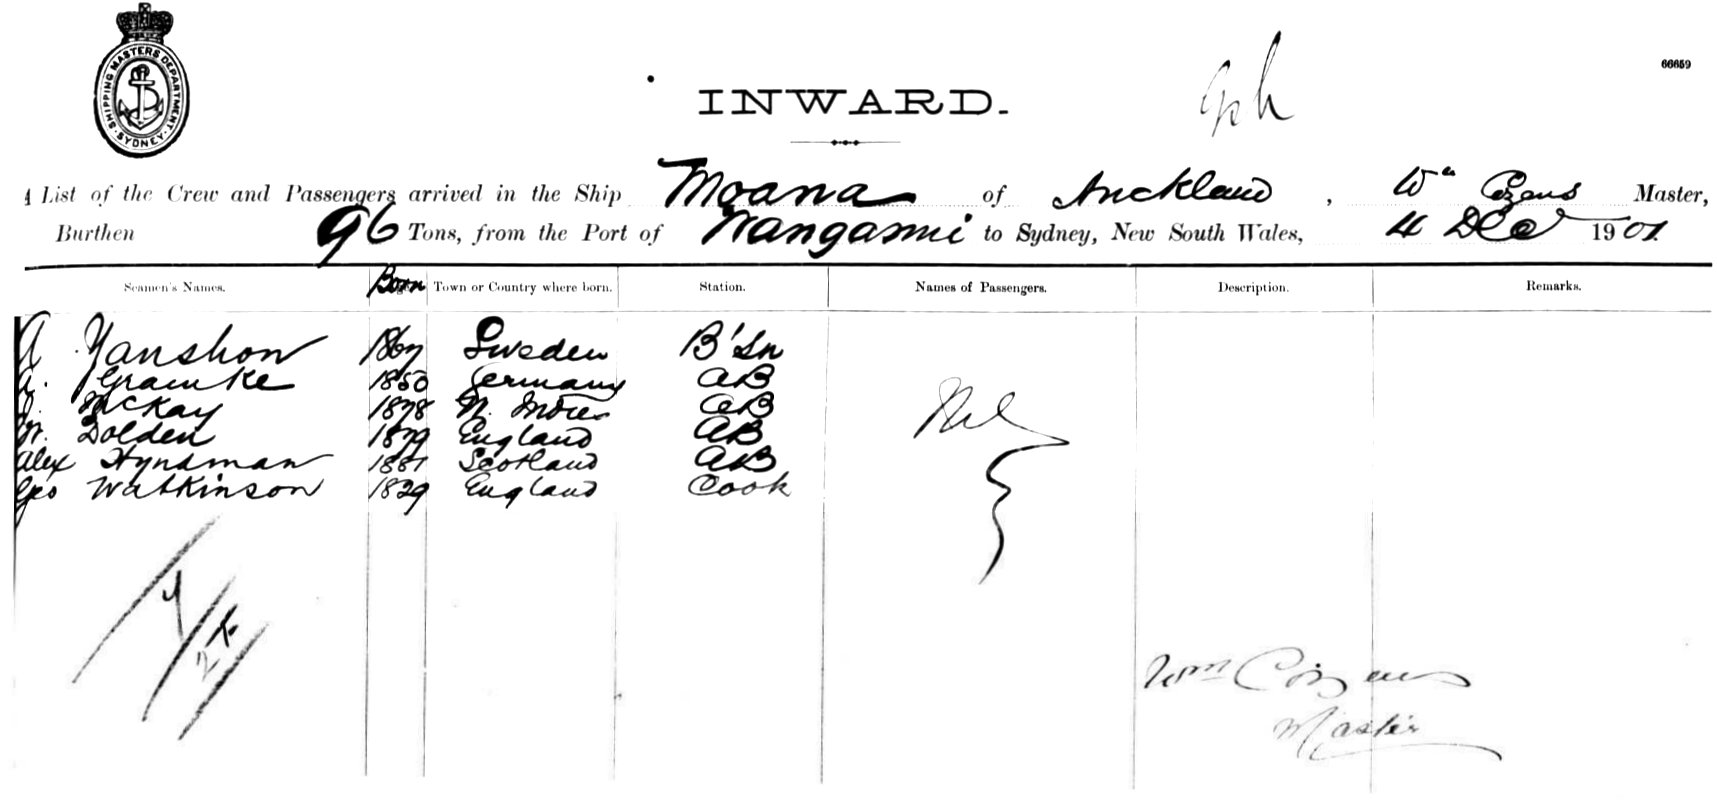 SHIPPING MASTERS DEPARTMENT
SYDNEY
66659
INWARD.
A List of the Crew and Passengers arrived in the Ship Moana of Auckland, Wm Cozens Master,
Burthen 96 Tons, from the Port of Wanganui to Sydney, New South Wales, 4 Dec 1901
Seamen's Names. Born Town or Country where born. Station. Names of Passengers. Description. Remarks.
A Yanshon 1867 Sweden B'Sn
A. Gramke 1850 Germany AB
J. McKay 1878 W. Indies AB
W. Dolden 1879 England AB
Alex Hyndman 1881 Scotland AB
Geo Watkinson 1829 England Cook
Nil
Wm Cozens
Master